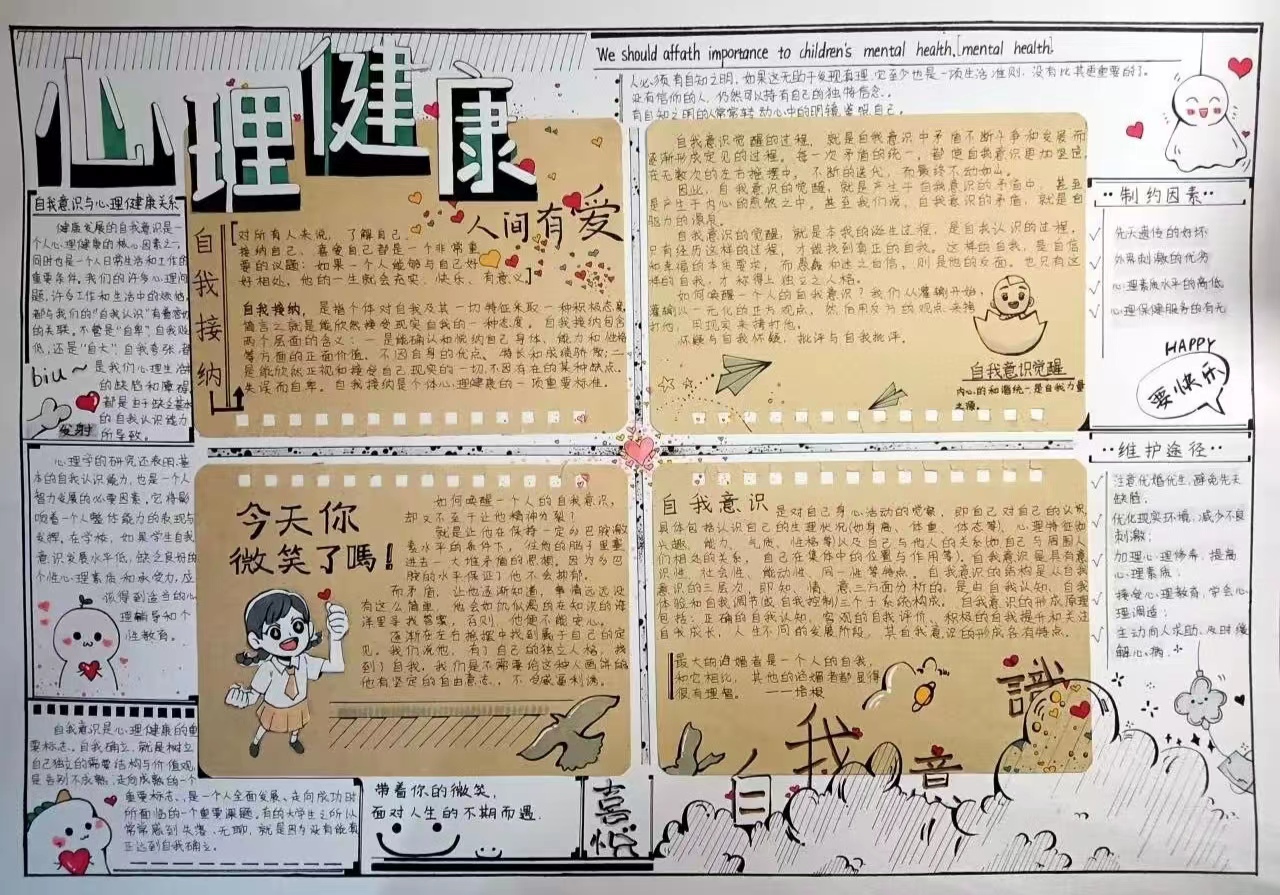 心理健康
We should affath importance to children's mental health.[mental health]
人必须有自知之明,如果这无助于发现真理,它至少也是一项生活准则,没有比其更重要的了。
没有信仰的人,仍然可以持有自己的独特信念。
有自知之明的人常常转动心中的明镜鉴照自己。
自我意识与心理健康关系
健康发展的自我意识是一
个人心理健康的核心因素之一,
同时也是一个人日常生活和工作的
重要条件。我们的许多心理问
题,许多工作和生活中的烦恼,
都与我们的“自我认识”有着密切
的关联。不管是“自卑”、自我贬
低,还是“自大”、自我夸张,都
是我们心理生活
的缺陷和障碍
都是由于缺乏基本
的自我认识能力
所导致。
biu~
发射
心理学的研究还表明,基
本的自我认识能力,也是一个人
智力发展的必要因素,它将影
响着一个人整体能力的表现与
发挥。在学校,如果学生自我
意识发展水平低,缺乏良好的
个性心理素质和承受力,应
该得到适当的心
理辅导和个
性教育。
自我意识是心理健康的重
要标志。自我确立,就是树立
自己独立的需要结构与价值观,
是告别不成熟、走向成熟的一个
重要标志,是一个人全面发展、走向成功时
所面临的一个重要课题。有的大学生之所以
常常感到失落、无聊,就是因为没有能真
正达到自我确立。
人间有爱
自我接纳
对所有人来说,了解自己、
接纳自己、喜爱自己都是一个非常重
要的议题:如果一个人能够与自己好
好相处,他的一生就会充实、快乐、有意义
自我接纳,是指个体对自我及其一切特征采取一种积极态度,
简言之就是能欣然接受现实自我的一种态度。自我接纳包含
两个层面的含义:一是能确认和悦纳自己身体、能力和性格
等方面的正面价值,不因自身的优点、特长和成绩骄傲;二
是能欣然正视和接受自己现实的一切,不因存在的某种缺点、
失误而自卑。自我接纳是个体心理健康的一项重要标准。
自我意识觉醒的过程,就是自我意识中矛盾不断斗争和发展而
逐渐形成定见的过程。每一次矛盾的统一,都使自我意识更加坚定,
在无数次的左右摇摆中,不断的迭代,而最终不动如山。
因此,自我意识的觉醒,就是产生于自我意识的矛盾中,甚至
是产生于内心的煎熬之中。甚至我们说,自我意识的矛盾,就是自
我力的源泉。
自我意识的觉醒,就是本我的诞生过程,是自我认识的过程。
只有经历这样的过程,才能找到真正的自我。这样的自我,是自信
和幸福的本质要求,而愚蠢和迷之自信,则是他的反面。也只有这
样的自我,才称得上独立之人格。
如何唤醒一个人的自我意识?我们从灌输开始,
灌输以一元化的正方观点,然后用反方的观点来拷
打他,用现实来拷打他。
怀疑与自我怀疑,批评与自我批评。
自我意识觉醒
内心的和谐统一是自我力量
之源。
制约因素
先天遗传的好坏
外界刺激的优劣
心理素质水平的高低
心理保健服务的有无
HAPPY
要快乐
维护途径
注意优婚优生,避免先天
缺陷;
优化现实环境,减少不良
刺激;
加理心理修养,提高
心理素质;
接受心理教育,学会心
理调适;
主动向人求助,及时缓
解心病。
今天你
微笑了嗎!
如何唤醒一个人的自我意识,
却又不至于让他精神分裂?
就是让他在保持一定的巴胺激
素水平的条件下,往他的脑子里塞
进去一大堆矛盾的思想,因为多巴
胺的水平保证了他不会抑郁。
而矛盾,让他逐渐知道,事情远远没
有这么简单,他会如饥似渴的在知识的海
洋里寻找答案,否则,他便不能安心。
逐渐在左右摇摆中找到属于自己的定
见。我们说他,有了自己的独立人格,找
到了自我,我们是不需要给这种人画饼的,
他有坚定的自由意志,不受威逼利诱。
自我意识是对自己身心活动的觉察,即自己对自己的认识,
具体包括认识自己的生理状况(如身高、体重、体态等)、心理特征(如
兴趣、能力、气质、性格等)以及自己与他人的关系(如自己与周围人
们相处的关系,自己在集体中的位置与作用等)。自我意识是具有意
识性、社会性、能动性、同一性等特点。自我意识的结构是从自我
意识的三层次,即知、情、意三方面分析的,是由自我认知、自我
体验和自我调节(或自我控制)三个子系统构成。自我意识的形成原理
包括:正确的自我认知、客观的自我评价、积极的自我提升和关注
自我成长,人生不同的发展阶段,其自我意识的形成各有特点。
最大的谄媚者是一个人的自我,
和它相比,其他的谄媚者都显得
很有理智。——培根
自我意識
带着你的微笑,
面对人生的不期而遇.
喜悦